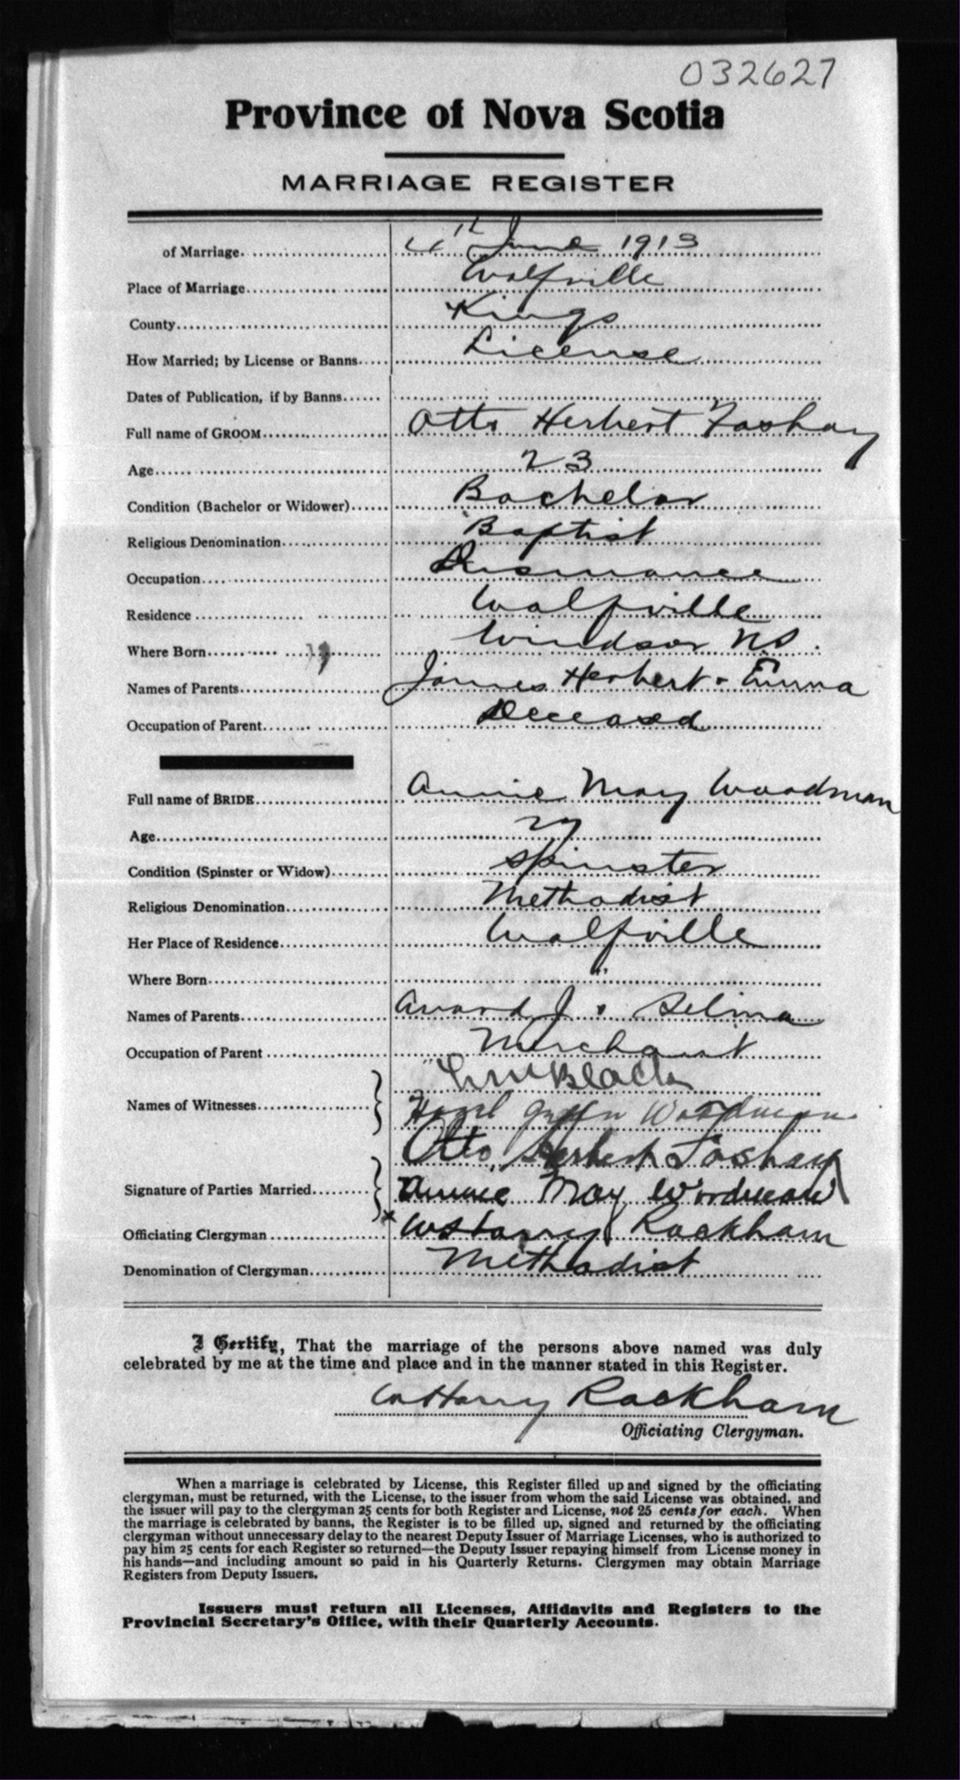 032627
Province of Nova Scotia
MARRIAGE REGISTER
of Marriage 11th June 1913
Place of Marriage Wolfville
County Kings
How Married; by License or Banns License
Dates of Publication, if by Banns
Full name of GROOM Otto Herbert Foshay
Age 23
Condition (Bachelor or Widower) Bachelor
Religious Denomination Baptist
Occupation
Residence Wolfville
Where Born Windsor N.S.
Names of Parents James Herbert & Emma
Occupation of Parent Deceased
Full name of BRIDE Annie May Woodman
Age 27
Condition (Spinster or Widow) Spinster
Religious Denomination Methodist
Her Place of Residence Wolfville
Where Born "
Names of Parents Avard J & Selina
Occupation of Parent Merchant
Black
Names of Witnesses Woodman
Otto Herbert Foshay
Signature of Parties Married Annie May Woodman
Officiating Clergyman Harry Rackham
Denomination of Clergyman Methodist
I Certify, That the marriage of the persons above named was duly
celebrated by me at the time and place and in the manner stated in this Register.
Harry Rackham
Officiating Clergyman.
When a marriage is celebrated by License, this Register filled up and signed by the officiating
clergyman, must be returned, with the License, to the issuer from whom the said License was obtained, and
the issuer will pay to the clergyman 25 cents for both Register and License, not 25 cents for each. When
the marriage is celebrated by banns, the Register is to be filled up, signed and returned by the officiating
clergyman without unnecessary delay to the nearest Deputy Issuer of Marriage Licenses, who is authorized to
pay him 25 cents for each Register so returned—the Deputy Issuer repaying himself from License money in
his hands—and including amount so paid in his Quarterly Returns. Clergymen may obtain Marriage
Registers from Deputy Issuers.
Issuers must return all Licenses, Affidavits and Registers to the
Provincial Secretary's Office, with their Quarterly Accounts.